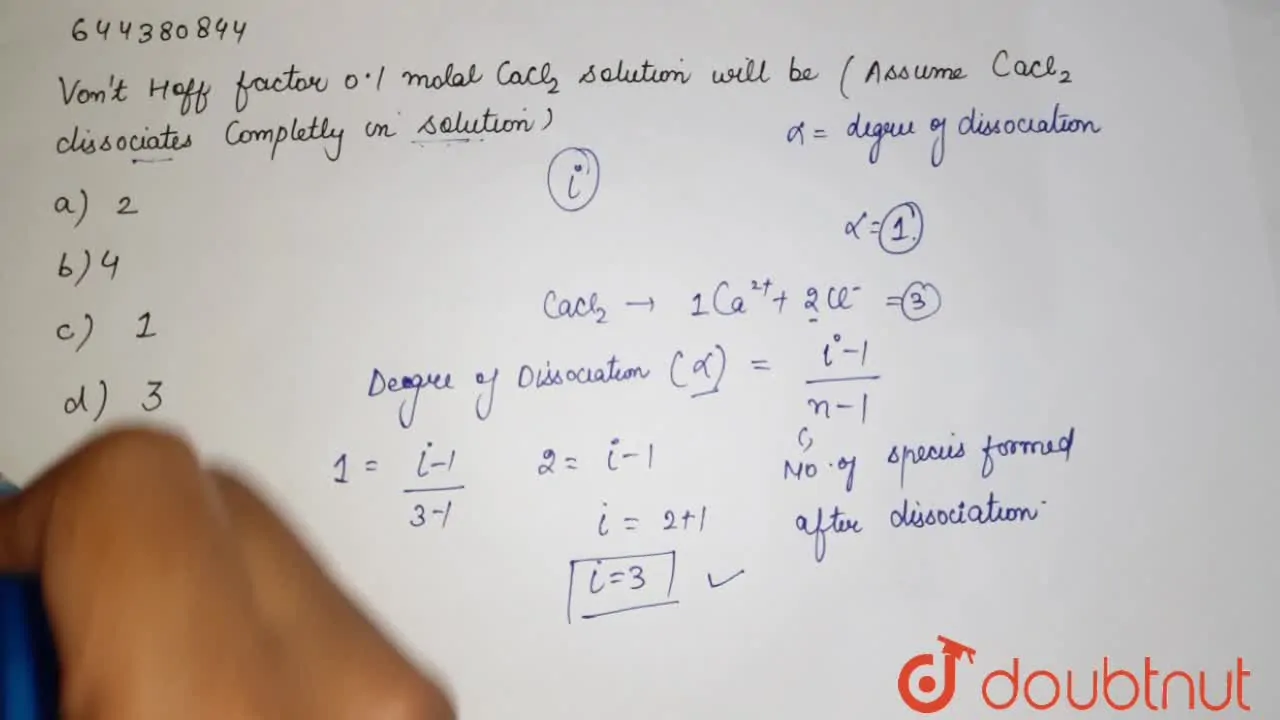 644380844
Von't Hoff factor 0.1 molal CaCl2 solution will be (Assume CaCl2
dissociates Completly in solution)
α = degree of dissociation
a) 2
i
α = 1.
b) 4
CaCl2 → 1Ca²⁺ + 2Cl⁻ = 3
c) 1
Degree of Dissociation (α) = i-1 / n-1
d) 3
1 = i-1 / 3-1
2 = i-1
No. of species formed
after dissociation.
i = 2+1
i=3 ✓
doubtnut